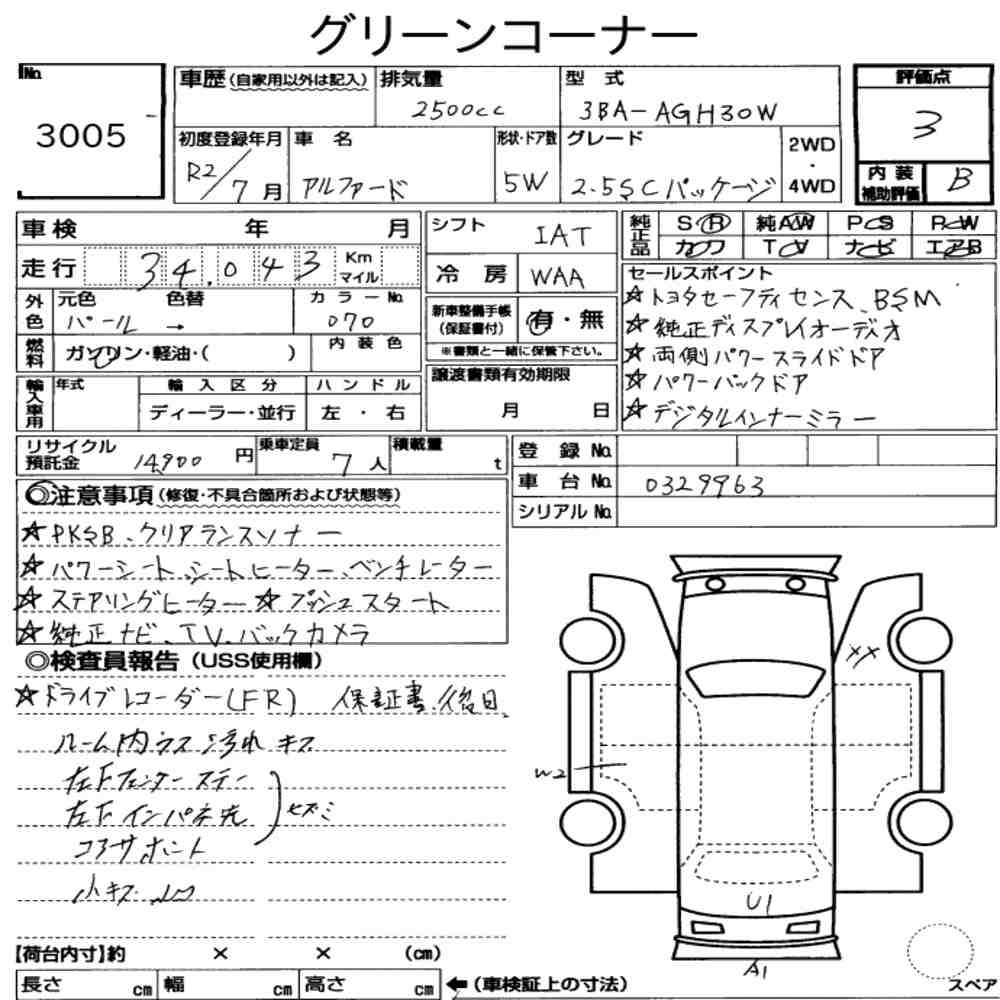 グリーンコーナー
No. 3005
車歴(自家用以外は記入) 排気量 2500cc 型式 3BA-AGH30W
評価点 3
初度登録年月 R2/7月 車名 アルファード 形状・ドア数 5W グレード 2.5SCパッケージ 2WD・4WD
内装補助評価 B
車検 年 月
走行 34,043 Km マイル
シフト IAT
冷房 WAA
純正品 SR 純AW PS PW
カワ TV ナビ エアB
外色 元色 パール 色替 → カラーNo. 070
燃料 ガソリン・軽油・( ) 内装色
新車整備手帳(保証書付) 有・無
※書類と一緒に保管下さい。
セールスポイント
☆トヨタセーフティセンス、BSM
☆純正ディスプレイオーディオ
☆両側パワースライドドア
☆パワーバックドア
☆デジタルインナーミラー
輸入車用 年式 輸入区分 ディーラー・並行 ハンドル 左・右
譲渡書類有効期限 月 日
リサイクル預託金 14,900円 乗車定員 7人 積載量 t
登録No.
車台No. 0329963
シリアルNo.
◎注意事項(修復・不具合箇所および状態等)
☆PKSB、クリアランスソナー
☆パワーシート、シートヒーター、ベンチレーター
☆ステアリングヒーター ☆プッシュスタート
☆純正ナビ、TV、バックカメラ
◎検査員報告(USS使用欄)
☆ドライブレコーダー(FR) 保証書、後日
ルーム内ウス汚れ キズ
左Fフェンダーステー
左Fインパネ先
コアサポート
ヒズミ
小キズ 凹
XX
W2
U1
A1
【荷台内寸】約 × × (cm)
長さ cm 幅 cm 高さ cm ←(車検証上の寸法)
スペア